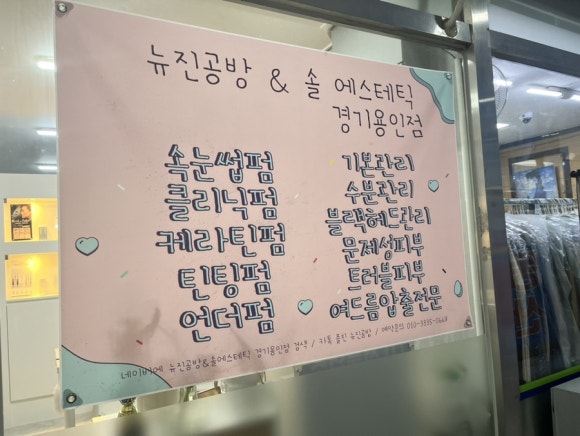 뉴진공방 & 솔 에스테틱
경기용인점
속눈썹펌
클리닉펌
케라틴펌
틴팅펌
언더펌
기본관리
수분관리
블랙헤드관리
문제성피부
트러블피부
여드름압출전문
네이버에 뉴진공방&솔에스테틱 경기용인점 검색 / 카톡 플친 뉴진공방 / 예약문의